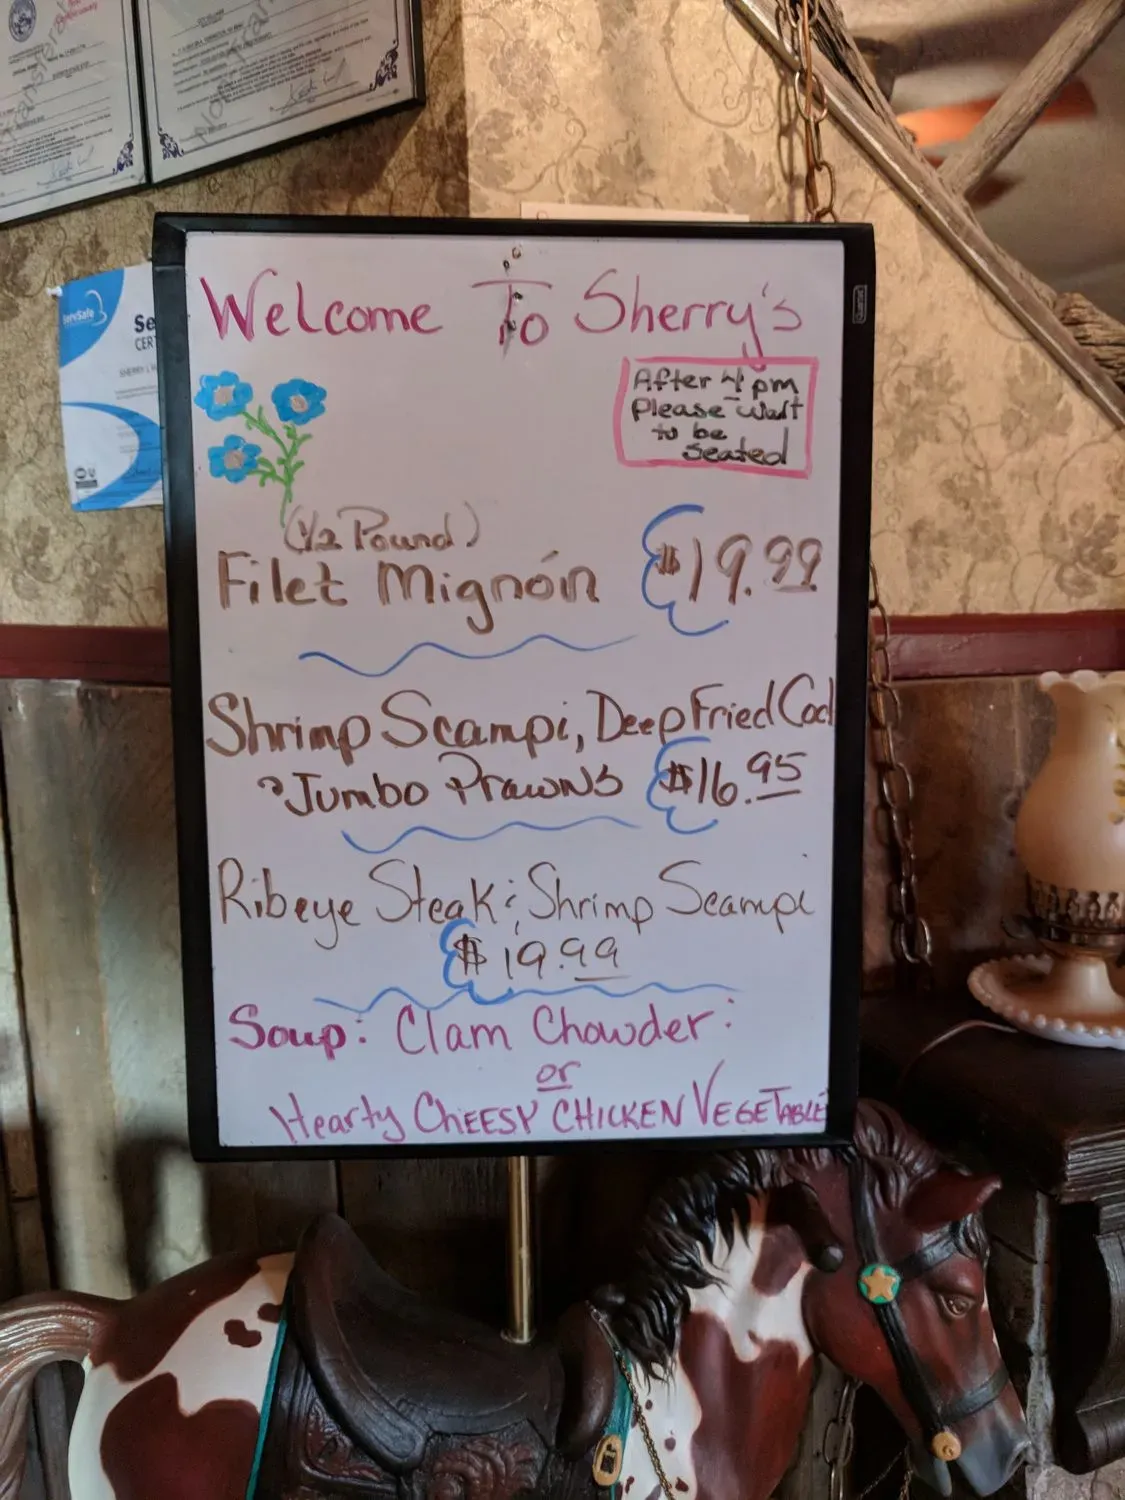 Welcome To Sherry's
After 4 pm
Please wait
to be
seated
(1/2 Pound)
Filet Mignón $19.99
Shrimp Scampi, Deep Fried Cod
Jumbo Prawns $16.95
Ribeye Steak & Shrimp Scampi
$19.99
Soup: Clam Chowder:
or
Hearty CHEESY CHICKEN VEGETABLE
ServSafe
Se
CERT
SHERRY L
Quartet